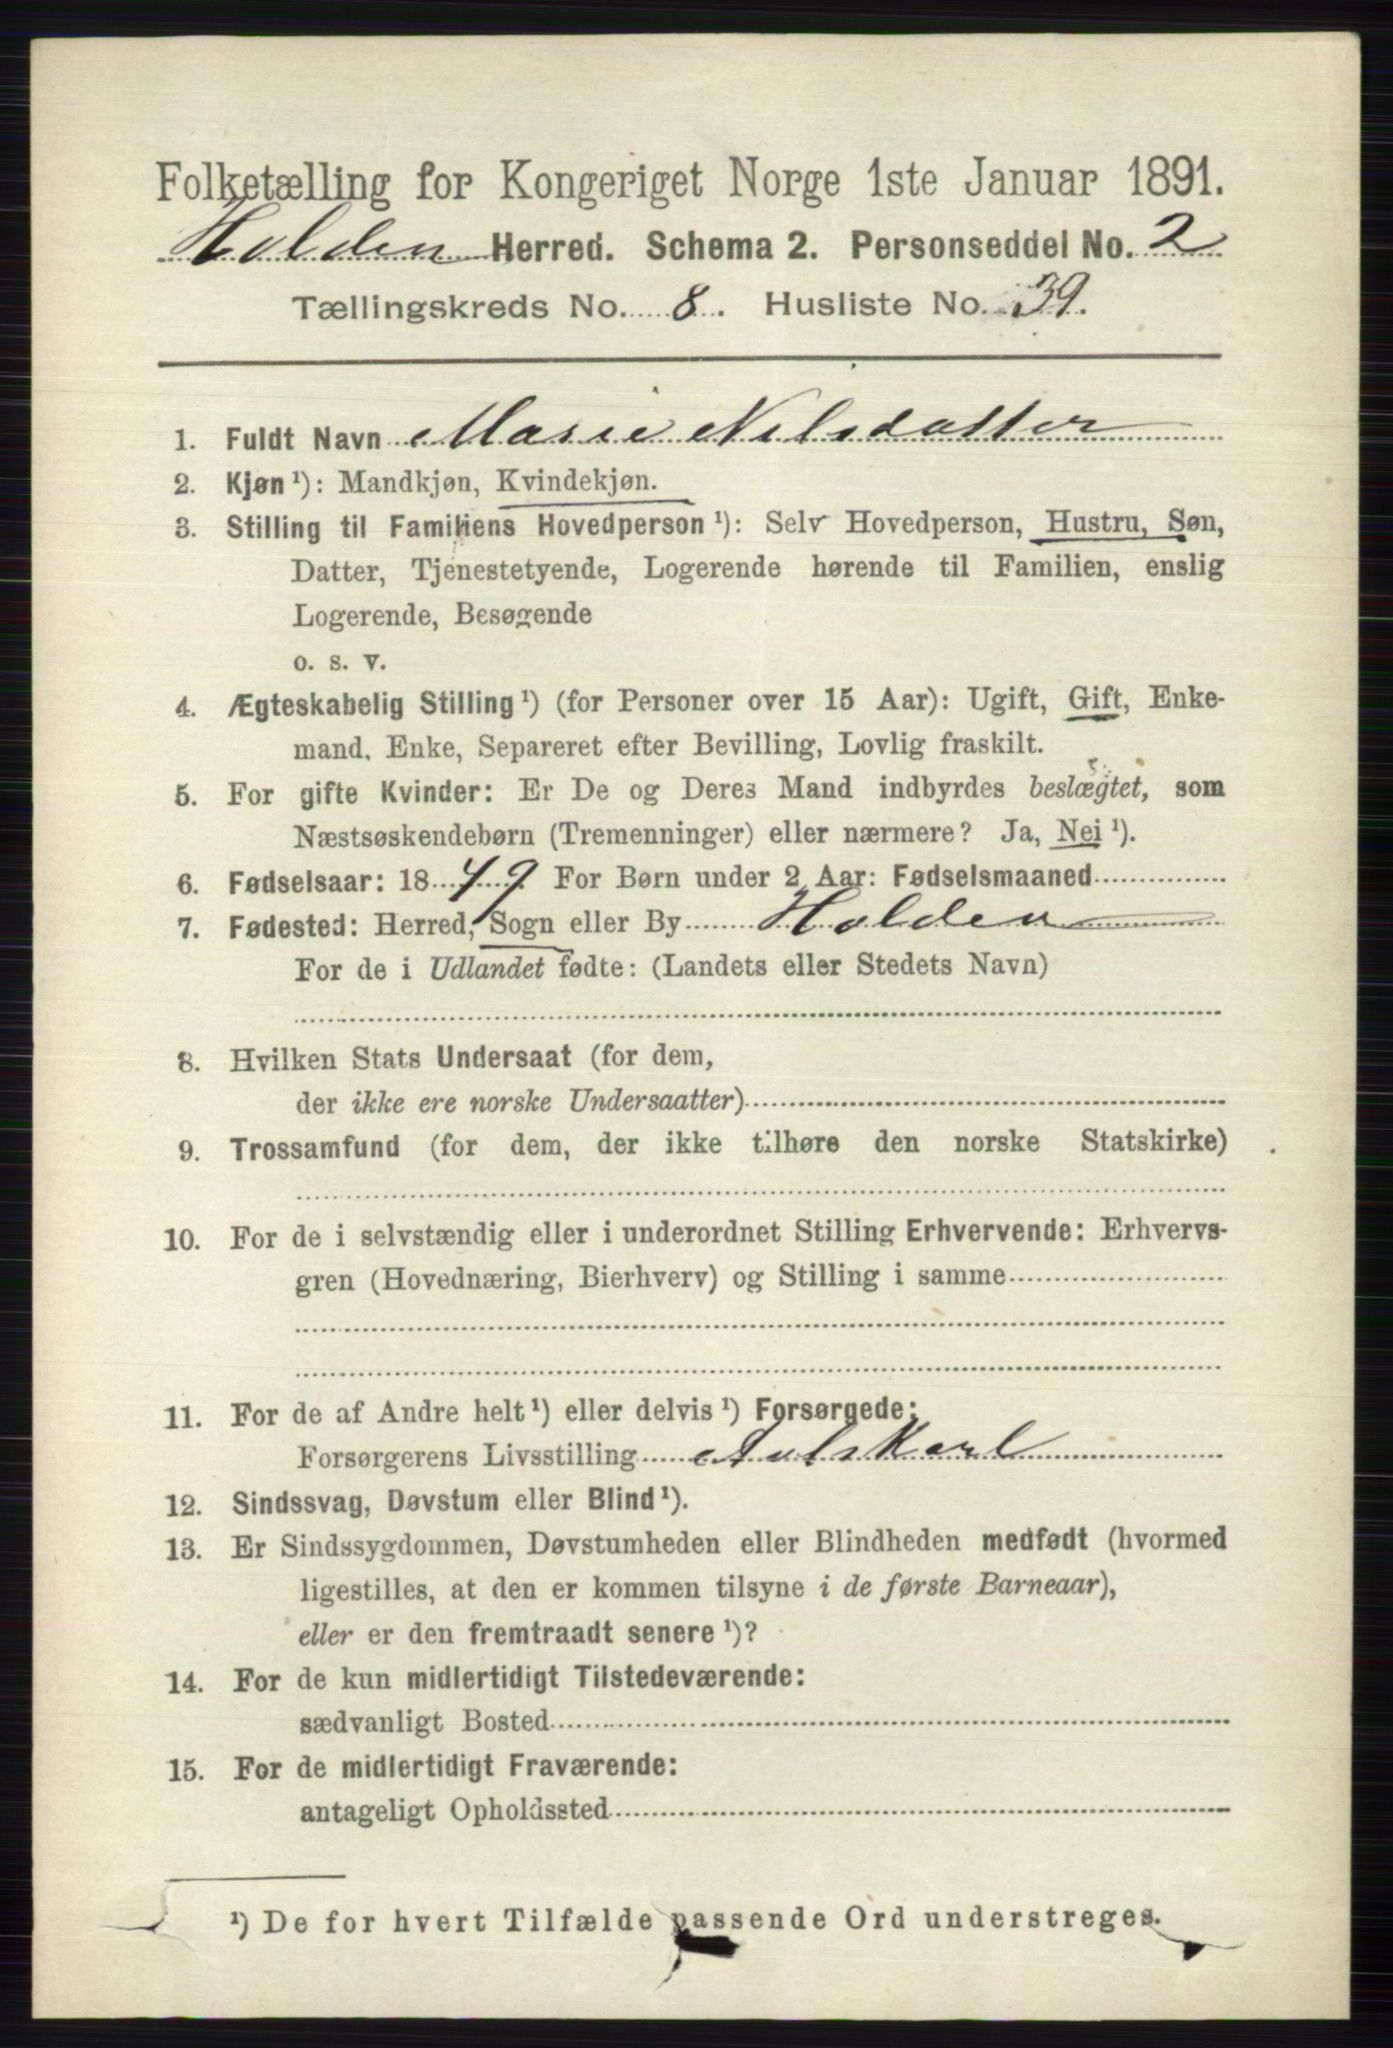 Folketælling for Kongeriget Norge 1ste Januar 1891.
Holden Herred. Schema 2. Personseddel No. 2
Tællingskreds No. 8. Husliste No. 39.
1. Fuldt Navn Marie Nilsdatter
2. Kjøn ¹): Mandkjøn, Kvindekjøn.
3. Stilling til Familiens Hovedperson ¹): Selv Hovedperson, Hustru, Søn,
Datter, Tjenestetyende, Logerende hørende til Familien, enslig
Logerende, Besøgende
o. s. v.
4. Ægteskabelig Stilling ¹) (for Personer over 15 Aar): Ugift, Gift, Enke-
mand, Enke, Separeret efter Bevilling, Lovlig fraskilt.
5. For gifte Kvinder: Er De og Deres Mand indbyrdes beslægtet, som
Næstsøskendebørn (Tremenninger) eller nærmere? Ja, Nei ¹).
6. Fødselsaar: 1849. For Børn under 2 Aar: Fødselsmaaned
7. Fødested: Herred, Sogn eller By Holden
For de i Udlandet fødte: (Landets eller Stedets Navn)
8. Hvilken Stats Undersaat (for dem,
der ikke ere norske Undersaatter)
9. Trossamfund (for dem, der ikke tilhøre den norske Statskirke)
10. For de i selvstændig eller i underordnet Stilling Erhvervende: Erhvervs-
gren (Hovednæring, Bierhverv) og Stilling i samme
11. For de af Andre helt ¹) eller delvis ¹) Forsørgede:
Forsørgerens Livsstilling
12. Sindssvag, Døvstum eller Blind ¹).
13. Er Sindssygdommen, Døvstumheden eller Blindheden medfødt (hvormed
ligestilles, at den er kommen tilsyne i de første Barneaar),
eller er den fremtraadt senere ¹)?
14. For de kun midlertidigt Tilstedeværende:
sædvanligt Bosted
15. For de midlertidigt Fraværende:
antageligt Opholdssted
¹) De for hvert Tilfælde passende Ord understreges.